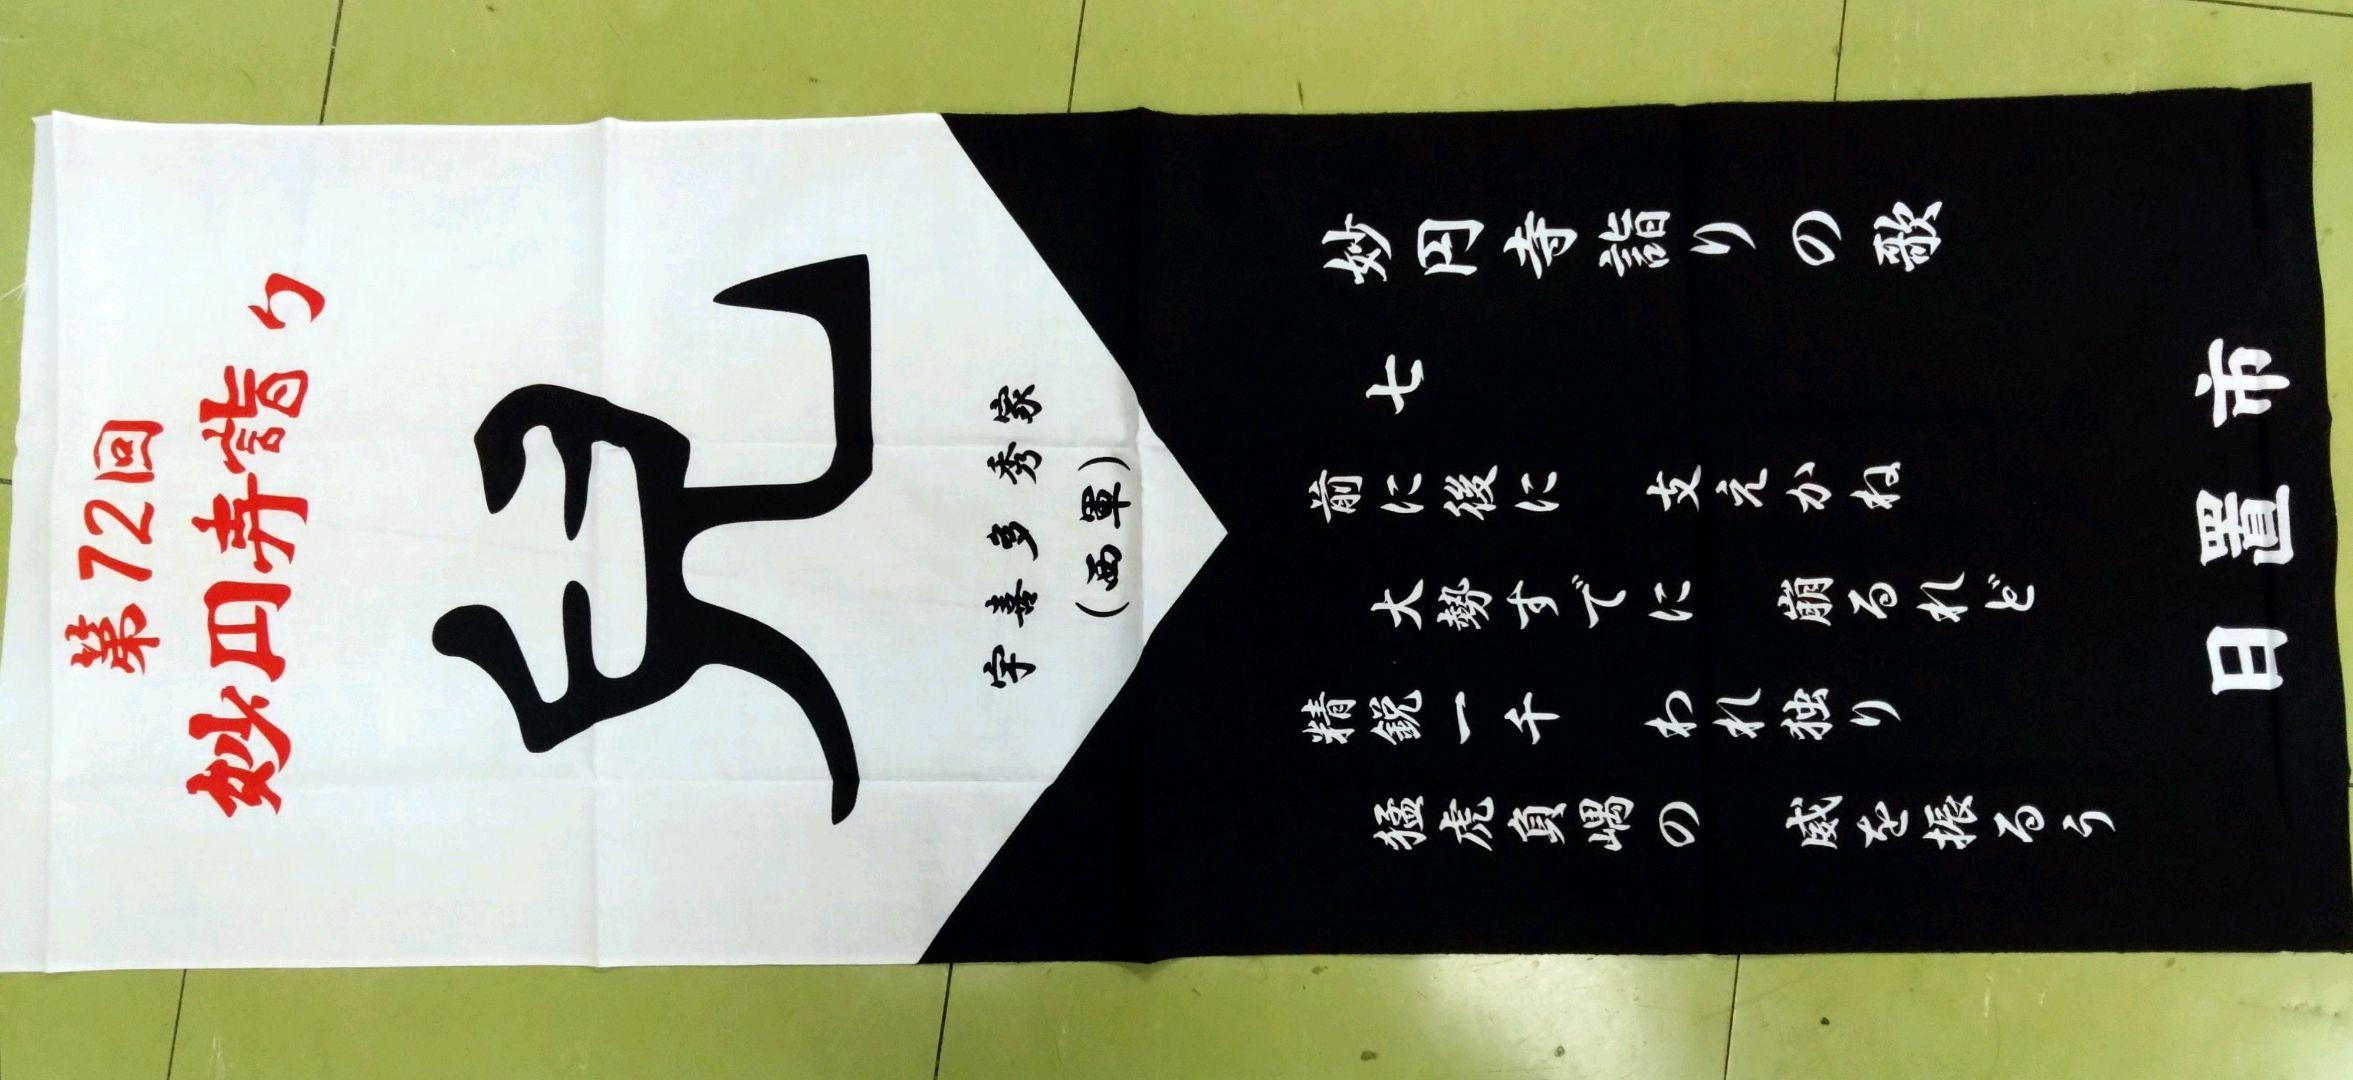 第72回
妙円寺詣り
兒
宇喜多秀家
(西軍)
妙円寺詣りの歌
七
前に後に 支えかね
大勢すでに 崩るれど
精鋭一千 われ独り
猛虎負嵎の 威を振るう
日置市